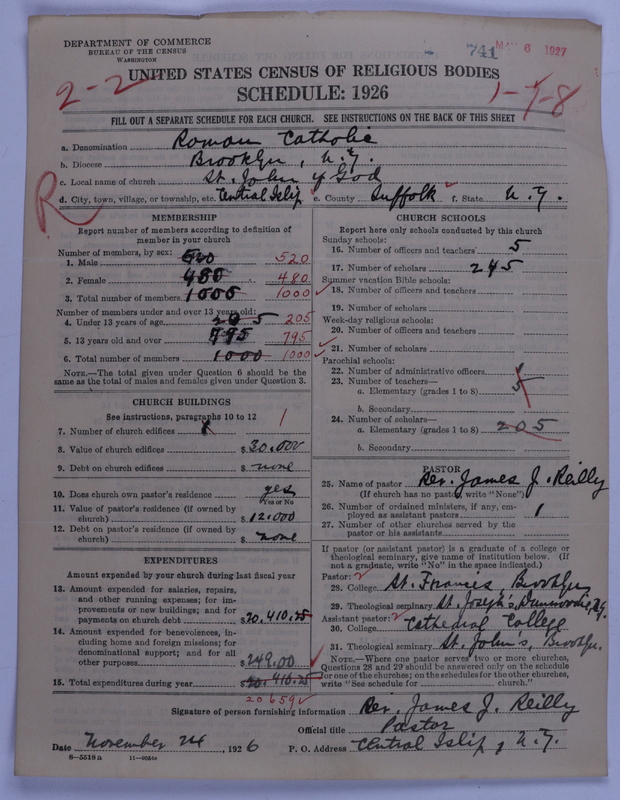 DEPARTMENT OF COMMERCE
BUREAU OF THE CENSUS
WASHINGTON
741 6 1927
2-2
UNITED STATES CENSUS OF RELIGIOUS BODIES
SCHEDULE: 1926
1-7-8
FILL OUT A SEPARATE SCHEDULE FOR EACH CHURCH. SEE INSTRUCTIONS ON THE BACK OF THIS SHEET
a. Denomination Roman Catholic
b. Diocese Brooklyn, N.Y.
c. Local name of church St. John of God
R
d. City, town, village, or township, etc. Central Islip e. County Suffolk f. State N.Y.
MEMBERSHIP
Report number of members according to definition of
member in your church
Number of members, by sex:
1. Male 520 520
2. Female 480 480
3. Total number of members 1000 1000
Number of members under and over 13 years old:
4. Under 13 years of age 205 205
5. 13 years old and over 795 795
6. Total number of members 1000 1000
NOTE.—The total given under Question 6 should be the
same as the total of males and females given under Question 3.
CHURCH BUILDINGS
See instructions, paragraphs 10 to 12
7. Number of church edifices 1 1
8. Value of church edifices $ 30.000
9. Debt on church edifices $ none
10. Does church own pastor's residence yes
Yes or No
11. Value of pastor's residence (if owned by
church) $ 12.000
12. Debt on pastor's residence (if owned by
church) $ none
EXPENDITURES
Amount expended by your church during last fiscal year
13. Amount expended for salaries, repairs,
and other running expenses; for im-
provements or new buildings; and for
payments on church debt $ 20,410.25
14. Amount expended for benevolences, in-
cluding home and foreign missions; for
denominational support; and for all
other purposes $ 249.00
15. Total expenditures during year $ 20.410.25
20659
CHURCH SCHOOLS
Report here only schools conducted by this church
Sunday schools:
16. Number of officers and teachers 5
17. Number of scholars 245
Summer vacation Bible schools:
18. Number of officers and teachers
19. Number of scholars
Week-day religious schools:
20. Number of officers and teachers
21. Number of scholars
Parochial schools:
22. Number of administrative officers
23. Number of teachers—
a. Elementary (grades 1 to 8) 5
b. Secondary
24. Number of scholars—
a. Elementary (grades 1 to 8) 205
b. Secondary
PASTOR
25. Name of pastor Rev. James J. Reilly
(If church has no pastor, write "None")
26. Number of ordained ministers, if any, em-
ployed as assistant pastors 1
27. Number of other churches served by the
pastor or his assistants
If pastor (or assistant pastor) is a graduate of a college or
theological seminary, give name of institution below. (If
not a graduate, write "No" in the space indicated.)
Pastor: 2
28. College St. Francis Brooklyn
29. Theological seminary St. Joseph's, Dunwoodie, N.Y.
Assistant pastor: 2
30. College Cathedral College
31. Theological seminary St. John's, Brooklyn.
NOTE.—Where one pastor serves two or more churches,
Questions 28 and 29 should be answered only on the schedule
for one of the churches; on the schedules for the other churches,
write "See schedule for church."
Signature of person furnishing information Rev. James J. Reilly
Official title Pastor
Date November 24, 1926 P. O. Address Central Islip, N.Y.
8—5518a